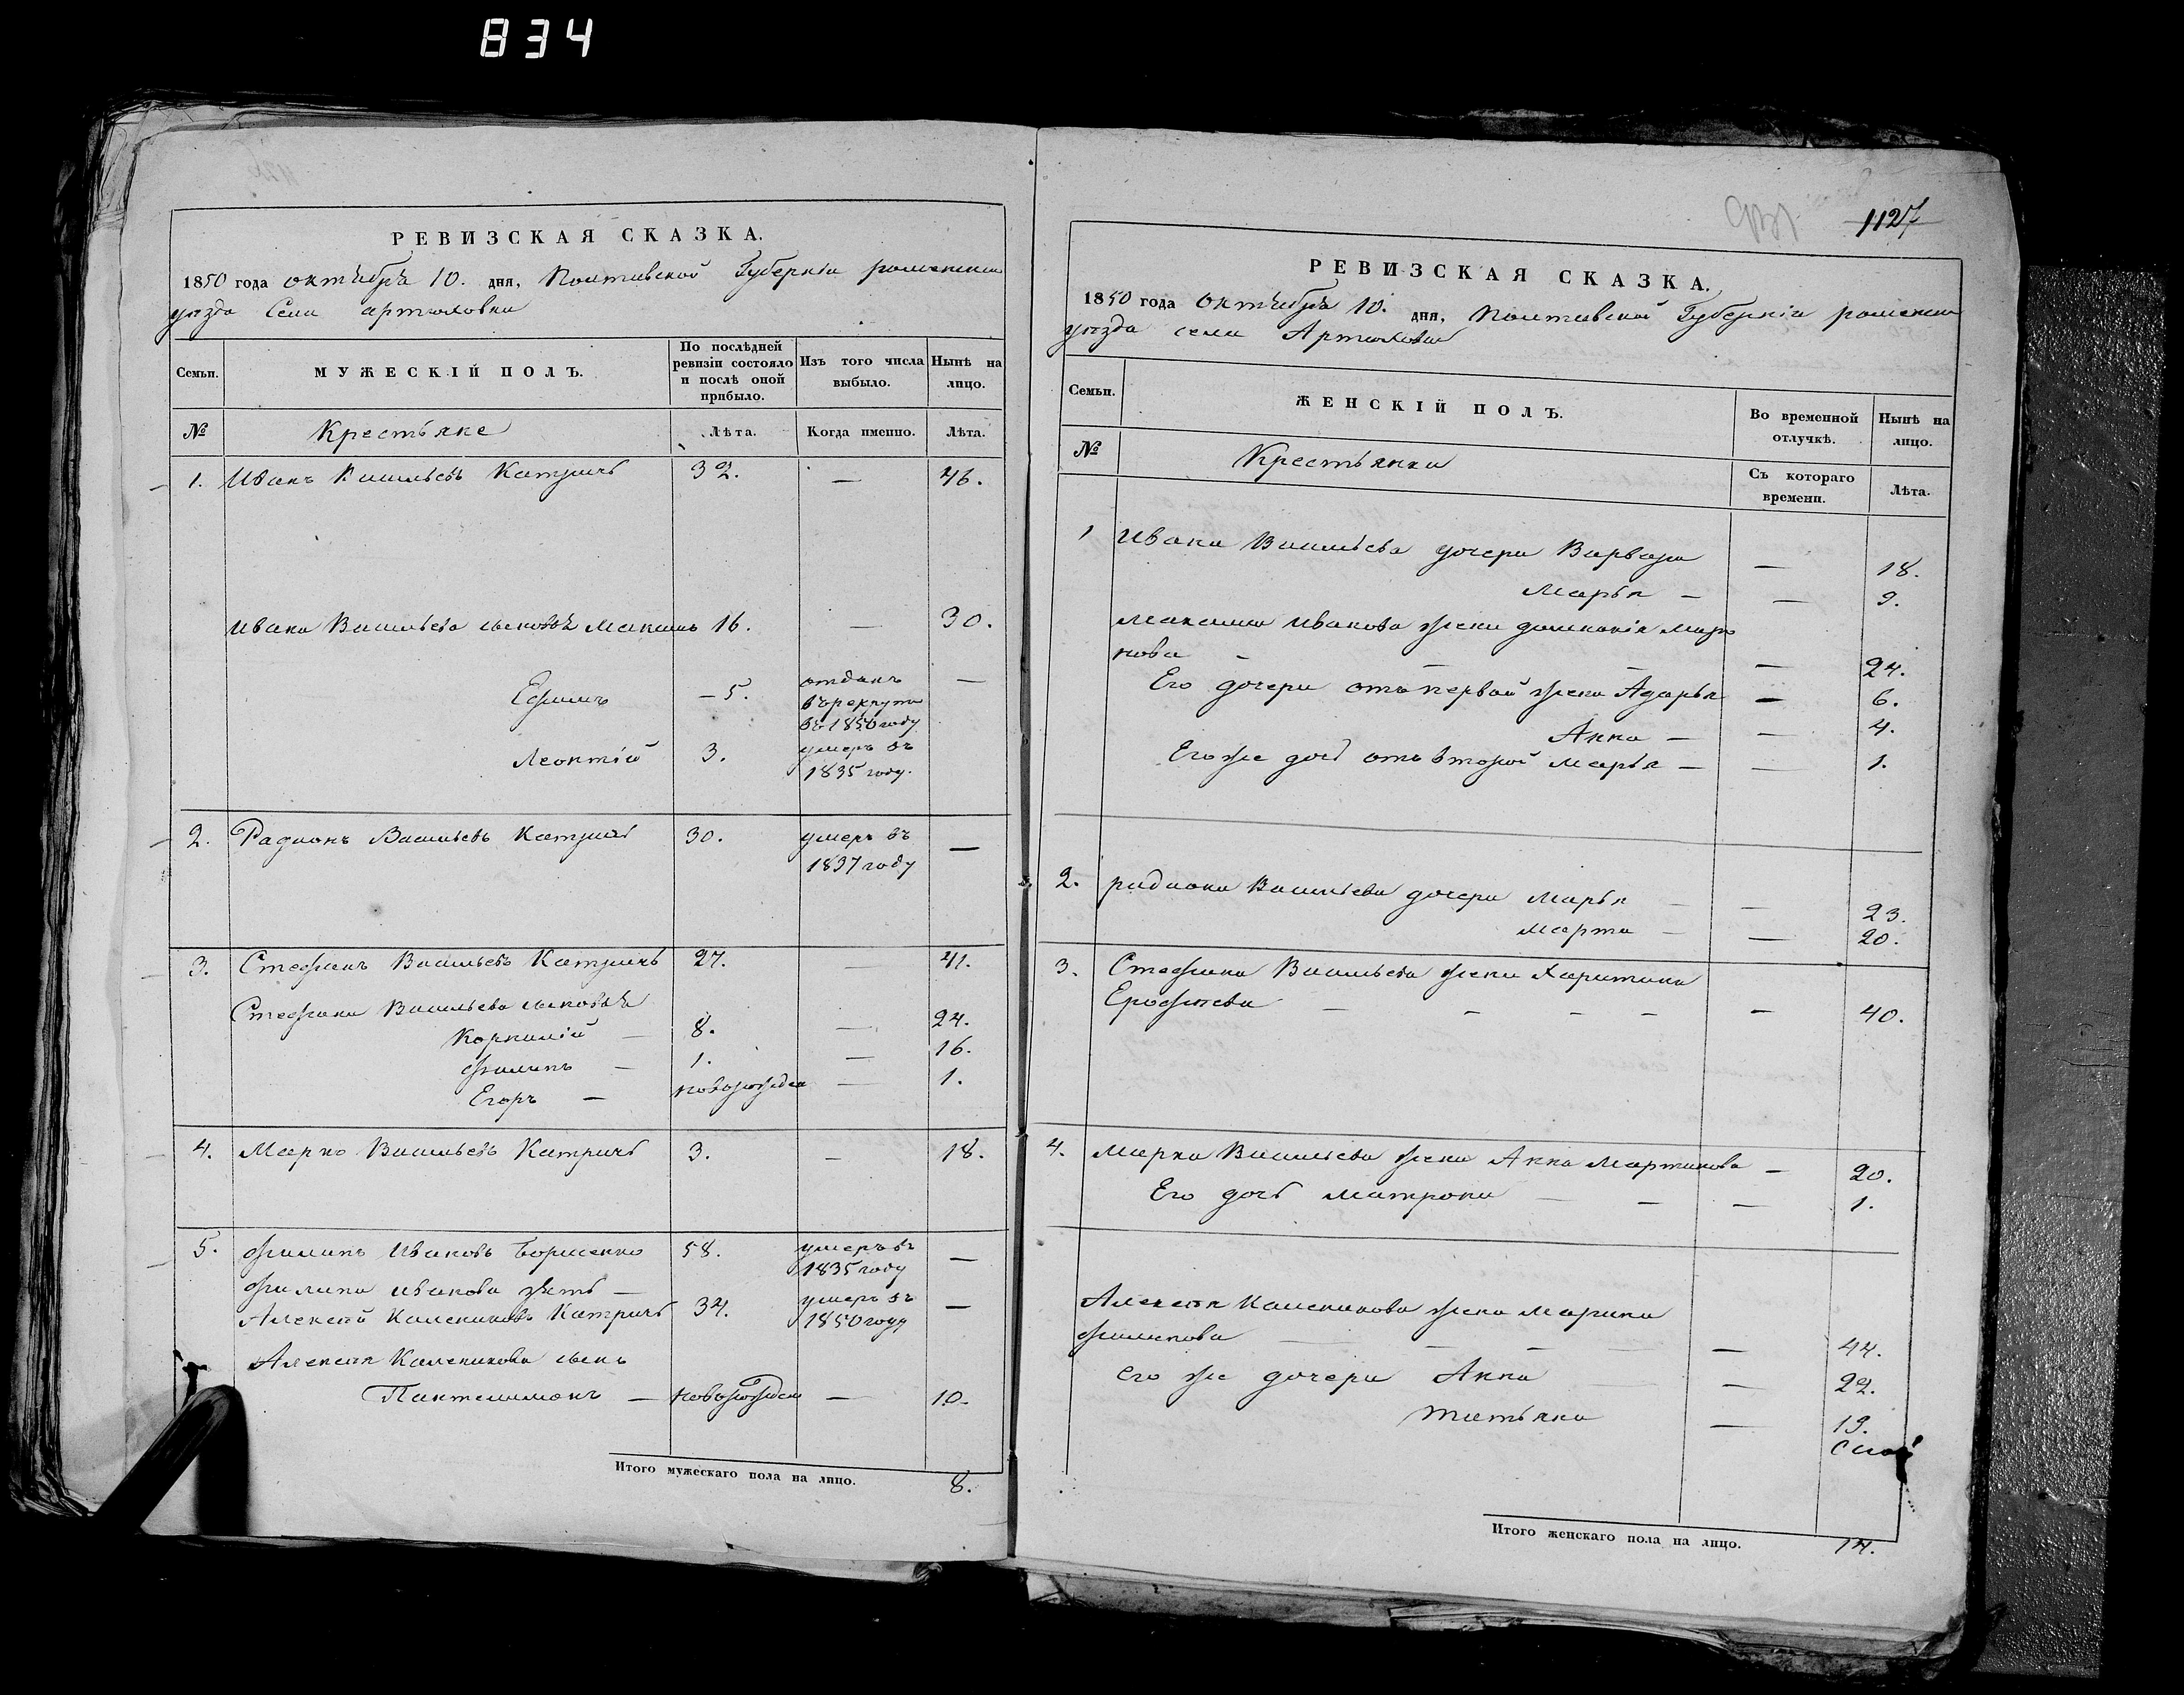 834
РЕВИЗСКАЯ СКАЗКА.
1850 года октября 10. дня, Полтавской Губерніи роменскаго
уезда Села артюховки
Семьи.
МУЖЕСКІЙ ПОЛЪ.
По послѣдней ревизіи состояло и послѣ оной прибыло.
Изъ того числа выбыло.
Нынѣ на лицо.
№
Крестьяне
Лѣта.
Когда именно.
Лѣта.
1. Иванъ Васильевъ Катричъ 32. — 46.
Ивана Васильева сыновья Максимъ 16. — 30.
Ефимъ — 5. отданъ въ рекруты въ 1850 году —
Леонтій 3. умеръ въ 1835 году.
2. Радионъ Васильевъ Катричъ 30. умеръ въ 1837 году —
3. Стефанъ Васильевъ Катричъ 27. — 41.
Стефана Васильева сыновья
Корнилій — 8. — 24.
Филипъ — 1. — 16.
Егоръ — новорожден — 1.
4. Марко Васильевъ Катричъ 3. — 18.
5. Филипъ Ивановъ Борисенко 58. умеръ въ 1835 году —
Филипа Иванова зять —
Алексей Калениковъ Катричъ 34. умеръ въ 1850 году —
Алексея Каленикова сынъ
Пантелимонъ — новорожден — 10.
Итого мужескаго пола на лицо. 8.
1127
РЕВИЗСКАЯ СКАЗКА.
1850 года октября 10. дня, Полтавской Губерніи роменскаго
уезда села Артюховки
Семьи.
ЖЕНСКІЙ ПОЛЪ.
Во временной отлучкѣ.
Нынѣ на лицо.
№
Крестьянки
Съ котораго времени.
Лѣта.
1 Ивана Васильева дочери Варвара — 18.
Марья — — 9.
Максима Иванова жена Домникія Мар
кова — — — — 24.
Его дочери отъ первой жены Адарья — 6.
Анна — — 4.
Его же дочь отъ второй Марья — — 1.
2. радиона Васильева дочери Марья — — 23.
Марта — — 20.
3. Стефана Васильева жена Харитина
Ерофеева — — — — — 40.
4. Марка Васильева жена Анна Мартинова — 20.
Его дочь Матрона — — — 1.
Алексея Каленикова жена Марина
Филипова — — — — 44.
его же дочери Анна — 22.
Татьяна — 19.
Итого женскаго пола на лицо. 14.